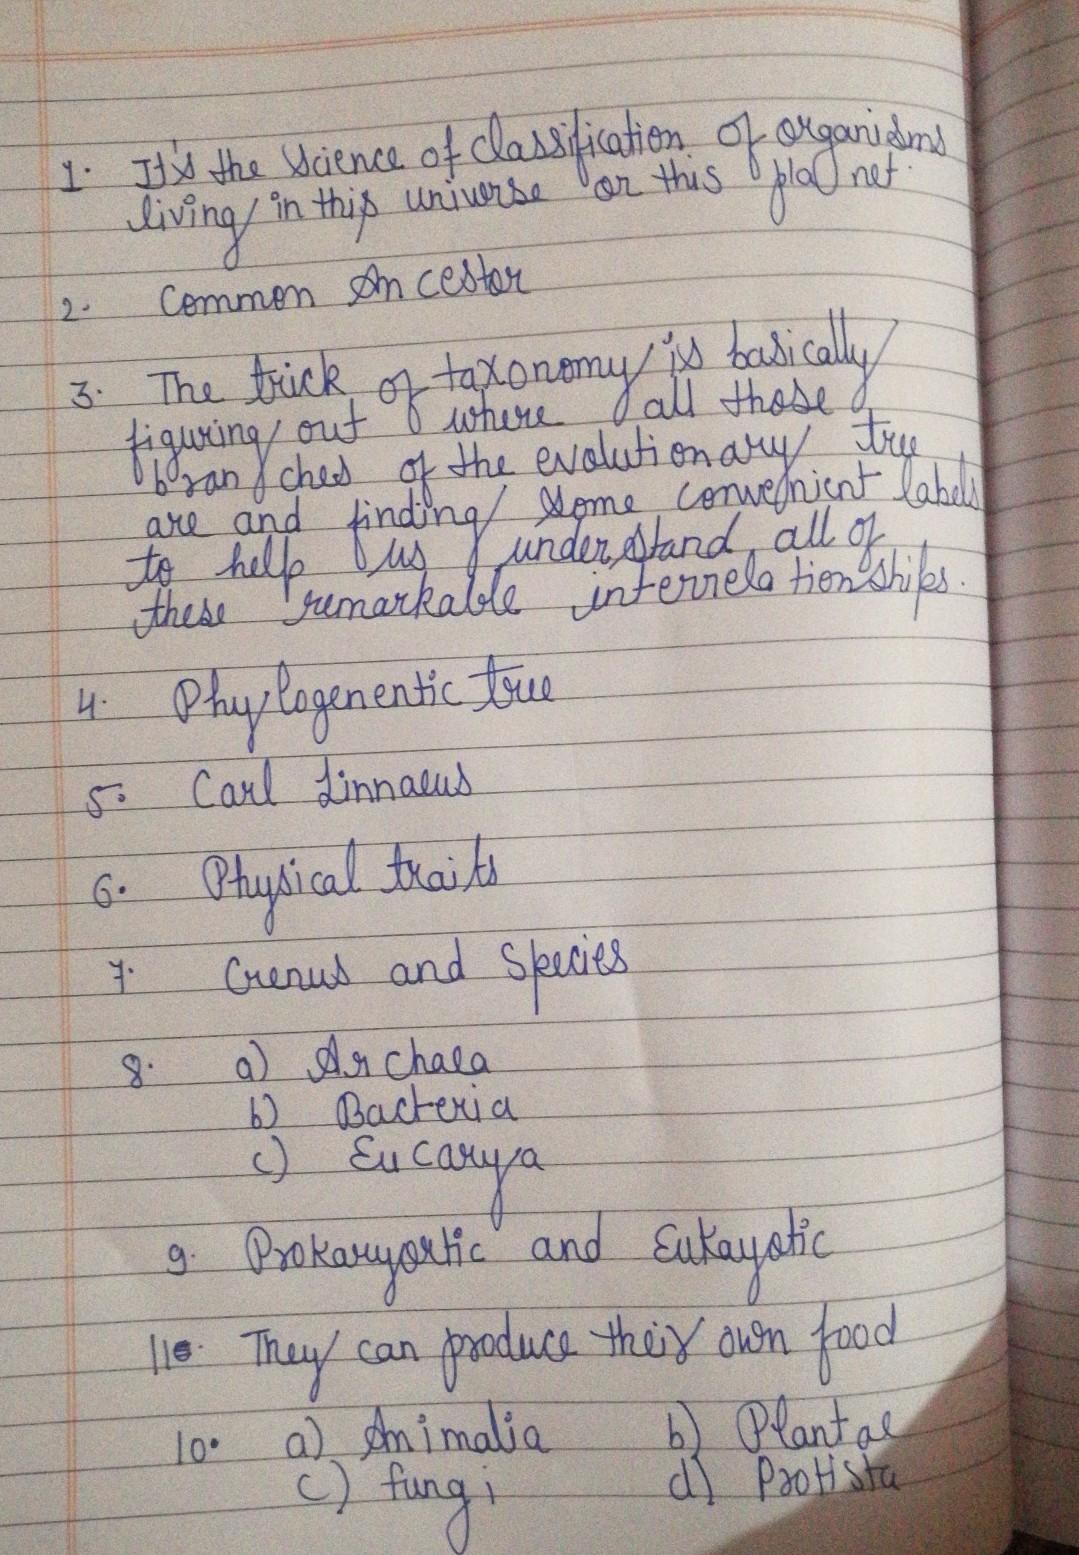 1. It's the science of classification of organisms
living in this universe or this planet.
2. Common Ancestor
3. The trick of taxonomy is basically
figuring out where all those
branches of the evolutionary tree
are and finding some convenient labels
to help us understand all of
these remarkable interrelationships.
4. Phylogenentic tree
5. Carl Linnaeus
6. Physical traits
7. Genus and Species
8. a) Archaea
b) Bacteria
c) Eucarya
9. Prokaryortic and Eukayotic
11. They can produce their own food
10. a) Animalia b) Plantae
c) fungi d) Protista